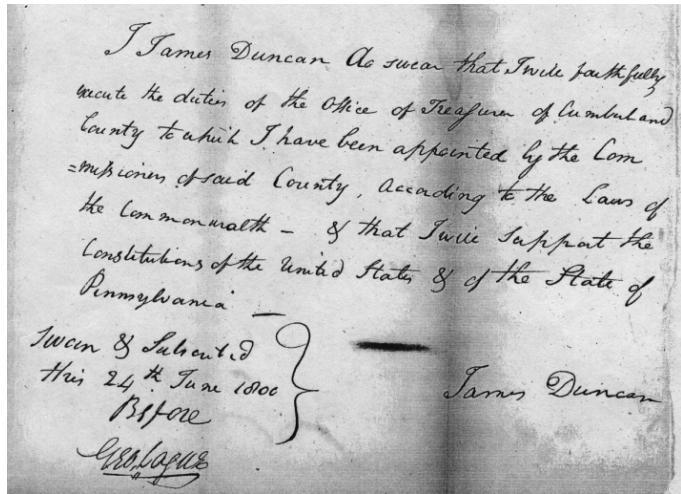 I James Duncan do swear that I will faithfully
execute the duties of the Office of Treasurer of Cumberland
County to which I have been appointed by the Com
=missioners of said County, according to the Laws of
the Commonwealth – & that I will Support the
Constitutions of the United States & of the State of
Pennsylvania –
Sworn & Subscribed
this 24th June 1800
Before
James Duncan
Geo. Logue